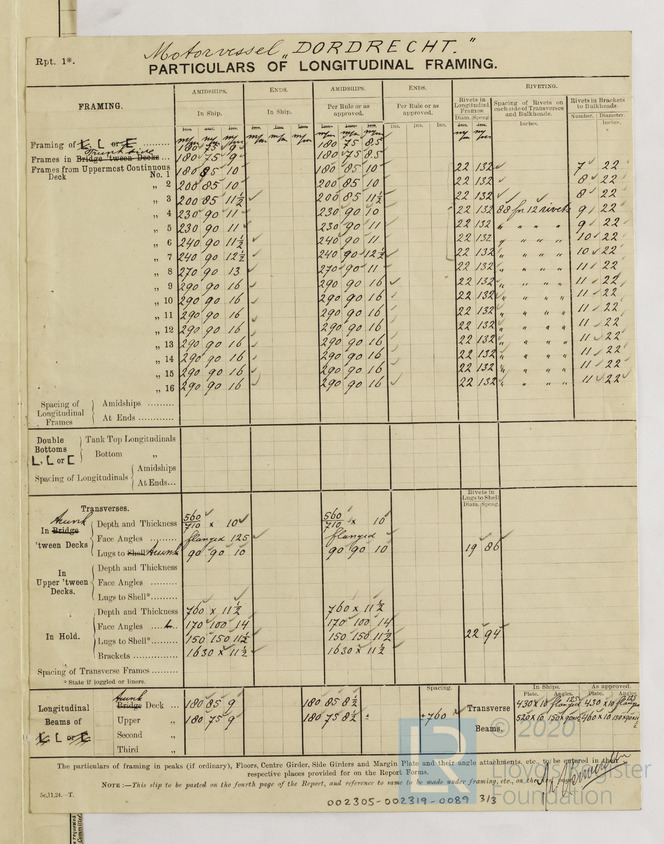 Rpt. 1*.
Motorvessel „DORDRECHT."
PARTICULARS OF LONGITUDINAL FRAMING.
FRAMING. AMIDSHIPS. ENDS. AMIDSHIPS. ENDS. RIVETING.
In Ship. In Ship. Per Rule or as approved. Per Rule or as approved. Rivets in Longitudinal Frames Diam. Speng Spacing of Rivets on each side of Transverses and Bulkheads. Inches. Rivets in Brackets to Bulkheads. Number. Diameter. Inches.
Framing of L, L or C 180 75 9 180 75 8.5
Frames in Bridge 'tween Decks Trunk side 180 75 9 180 75 8.5
Frames from Uppermost Continuous Deck No. 1 180 85 10 180 85 10 22 132 7 22
„ 2 200 85 10 200 85 10 22 132 8 22
„ 3 200 85 11½ 200 85 11½ 22 132 8 22
„ 4 230 90 11 230 90 10 22 132 88 for 12 rivets 9 22
„ 5 230 90 11 230 90 11 22 132 „ „ „ „ 9 22
„ 6 240 90 11½ 240 90 11 22 132 „ „ „ „ 10 22
„ 7 240 90 12½ 240 90 12½ 22 132 „ „ „ „ 10 22
„ 8 270 90 13 270 90 11 22 132 „ „ „ „ 11 22
„ 9 290 90 16 290 90 16 22 132 „ „ „ „ 11 22
„ 10 290 90 16 290 90 16 22 132 „ „ „ „ 11 22
„ 11 290 90 16 290 90 16 22 132 „ „ „ „ 11 22
„ 12 290 90 16 290 90 16 22 132 „ „ „ „ 11 22
„ 13 290 90 16 290 90 16 22 132 „ „ „ „ 11 22
„ 14 290 90 16 290 90 16 22 132 „ „ „ „ 11 22
„ 15 290 90 16 290 90 16 22 132 „ „ „ „ 11 22
„ 16 290 90 16 290 90 16 22 132 „ „ „ „ 11 22
Spacing of Longitudinal Frames Amidships
At Ends
Double Bottoms L, L or C Tank Top Longitudinals
Bottom „
Spacing of Longitudinals Amidships
At Ends
Transverses. Rivets in Lugs to Shell Diam. Speng
In Bridge trunk 'tween Decks Depth and Thickness 560/710 x 10 560/710 x 10
Face Angles flanged 125 flanged
Lugs to Shell trunk 90 90 10 90 90 10 19 86
In Upper 'tween Decks. Depth and Thickness
Face Angles
Lugs to Shell*
In Hold. Depth and Thickness 760 x 11½ 760 x 11½
Face Angles L 170 100 14 170 100 14
Lugs to Shell* 150 150 11½ 150 150 11½ 22 94
Brackets 1630 x 11½ 1630 x 11½
Spacing of Transverse Frames
* State if joggled or liners.
Longitudinal Beams of L, L or C Spacing. In Ships. Plate. Angles. As approved. Plate. Angles.
Bridge trunk Deck 180 85 9 180 85 8½ Transverse Beams. 430 x 10 flanged 125 430 x 10
Upper „ 180 75 9 180 75 8½ 760 520 x 10 460 x 10
Second „
Third „
The particulars of framing in peaks (if ordinary), Floors, Centre Girder, Side Girders and Margin Plate and their angle attachments, etc., to be entered in their
respective places provided for on the Report Forms.
NOTE:—This slip to be pasted on the fourth page of the Report, and reference to same to be made under framing, etc., on the
5c,11,24.—T.
002305-002319-0089 3/3
© 2020
LR
Lloyd's Register
Foundation